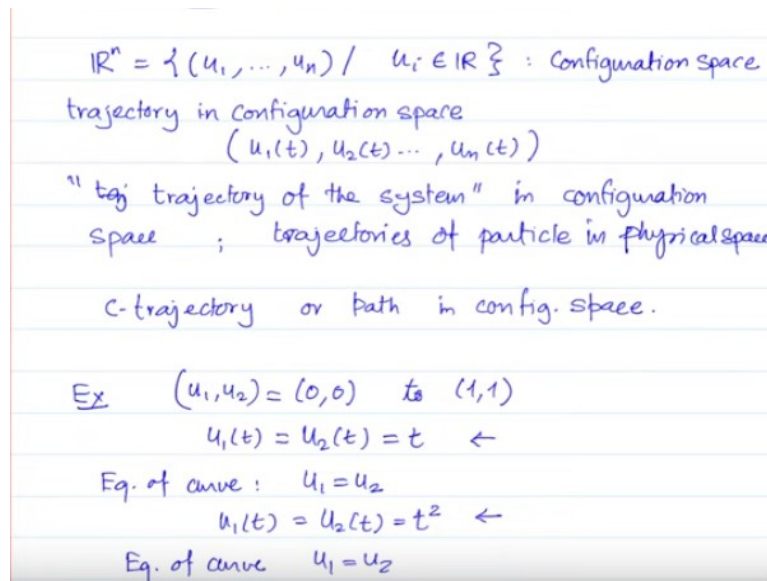 IRⁿ = {(u₁,...,uₙ) / uᵢ ∈ IR} : Configuration space
trajectory in configuration space
(u₁(t), u₂(t)..., uₙ(t))
" trajectory of the system" in configuration
space ; trajectories of particle in physical space
C-trajectory or path in config. space.
Ex (u₁,u₂) = (0,0) to (1,1)
u₁(t) = u₂(t) = t ←
Eq. of curve : u₁ = u₂
u₁(t) = u₂(t) = t² ←
Eq. of curve u₁ = u₂